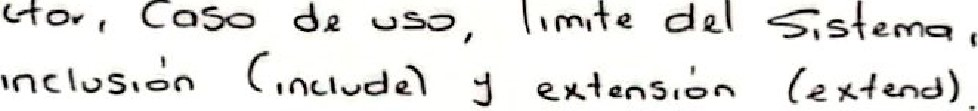 ctor, Caso de uso, limite del Sistema,
inclusión (include) y extensión (extend).